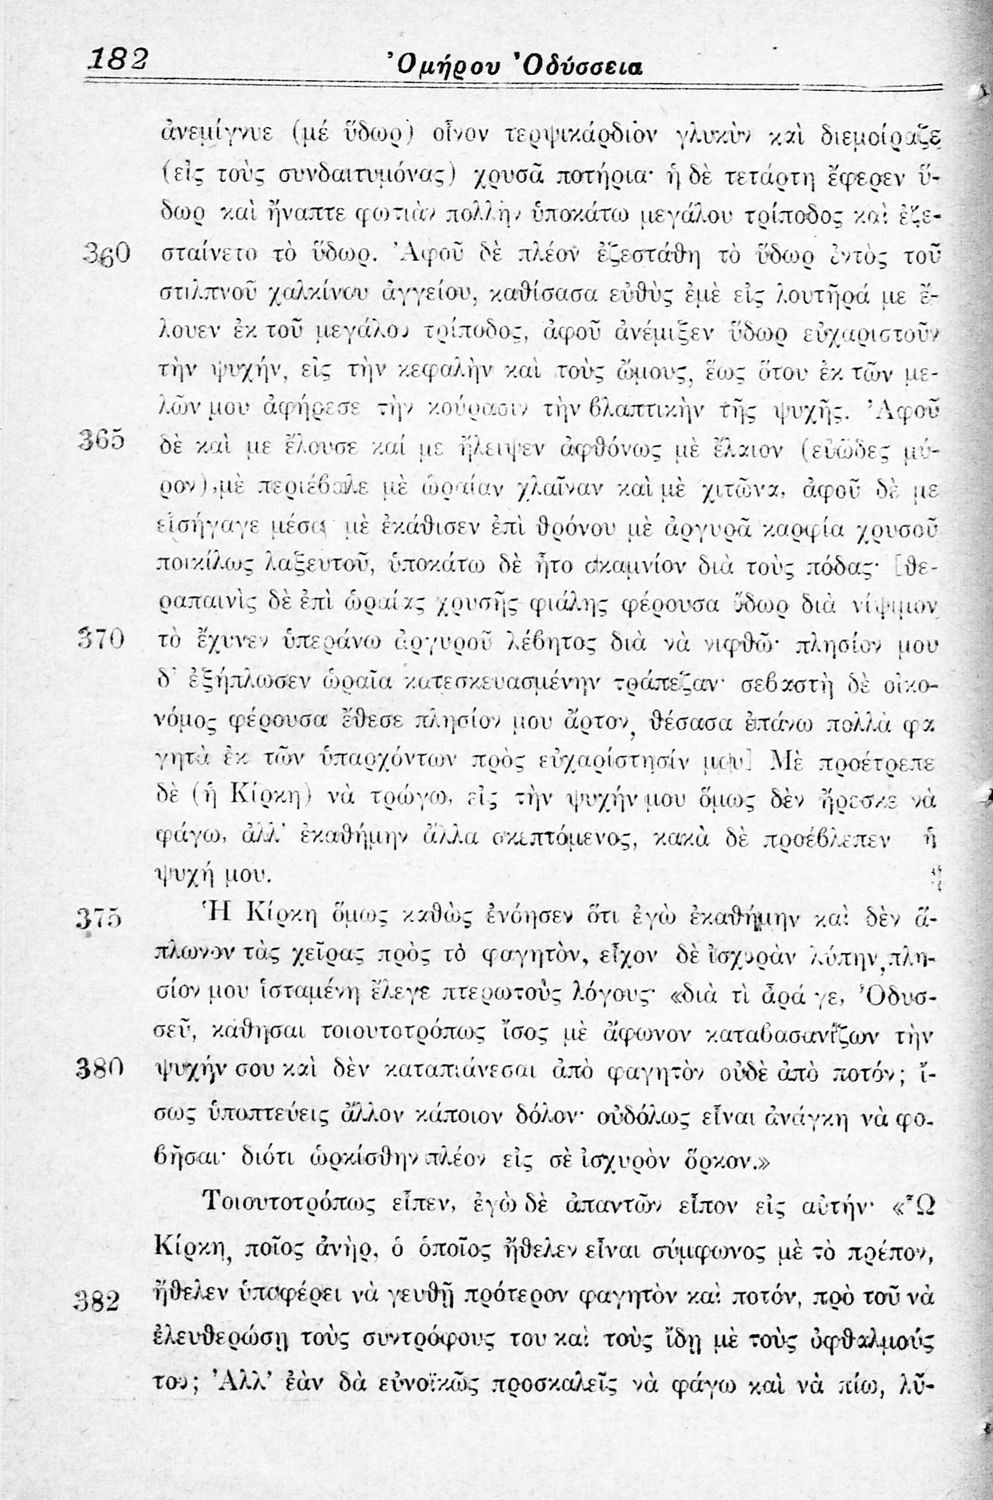 182 Ὁμήρου Ὀδύσσεια
ἀνεμίγνυε (μέ ὕδωρ) οἶνον τερψικάρδιον γλυκὺν καὶ διεμοίραζε
(εἰς τοὺς συνδαιτυμόνας) χρυσᾶ ποτήρια· ἡ δὲ τετάρτη ἔφερεν ὕ-
δωρ καὶ ἤναπτε φωτιὰν πολλὴν ὑποκάτω μεγάλου τρίποδος καὶ ἐζε-
360 σταίνετο τὸ ὕδωρ. Ἀφοῦ δὲ πλέον ἐζεστάθη τὸ ὕδωρ ἐντὸς τοῦ
στιλπνοῦ χαλκίνου ἀγγείου, καθίσασα εὐθὺς ἐμὲ εἰς λουτῆρά με ἔ-
λουεν ἐκ τοῦ μεγάλου τρίποδος, ἀφοῦ ἀνέμιξεν ὕδωρ εὐχαριστοῦν
τὴν ψυχήν, εἰς τὴν κεφαλὴν καὶ τοὺς ὤμους, ἕως ὅτου ἐκ τῶν με-
λῶν μου ἀφήρεσε τὴν κούρασιν τὴν βλαπτικὴν τῆς ψυχῆς. Ἀφοῦ
365 δὲ καὶ με ἔλουσε καί με ἤλειψεν ἀφθόνως μὲ ἔλαιον (εὐῶδες μύ-
ρον), μὲ περιέβαλε μὲ ὡραίαν χλαῖναν καὶ μὲ χιτῶνα, ἀφοῦ δὲ με
εἰσήγαγε μέσα μὲ ἐκάθισεν ἐπὶ θρόνου μὲ ἀργυρᾶ καρφία χρυσοῦ
ποικίλως λαξευτοῦ, ὑποκάτω δὲ ἦτο σκαμνίον διὰ τοὺς πόδας· [θε-
ραπαινὶς δὲ ἐπὶ ὡραίας χρυσῆς φιάλης φέρουσα ὕδωρ διὰ νίψιμον
370 τὸ ἔχυνεν ὑπεράνω ἀργυροῦ λέβητος διὰ νὰ νιφθῶ· πλησίον μου
δ' ἐξήπλωσεν ὡραῖα κατεσκευασμένην τράπεζαν· σεβαστὴ δὲ οἰκο-
νόμος φέρουσα ἔθεσε πλησίον μου ἄρτον, θέσασα ἐπάνω πολλὰ φα
γητὰ ἐκ τῶν ὑπαρχόντων πρὸς εὐχαρίστησίν μου] Μὲ προέτρεπε
δὲ (ἡ Κίρκη) νὰ τρώγω, εἰς τὴν ψυχήν μου ὅμως δὲν ἤρεσκε νὰ
φάγω, ἀλλ' ἐκαθήμην ἄλλα σκεπτόμενος, κακὰ δὲ προέβλεπεν ἡ
ψυχή μου.
375 Ἡ Κίρκη ὅμως καθὼς ἐνόησεν ὅτι ἐγὼ ἐκαθήμην καὶ δὲν ἅ-
πλωνον τὰς χεῖρας πρὸς τὸ φαγητὸν, εἶχον δὲ ἰσχυρὰν λύπην, πλη-
σίον μου ἱσταμένη ἔλεγε πτερωτοὺς λόγους· «διὰ τὶ ἆρά γε, Ὀδυσ-
σεῦ, κάθησαι τοιουτοτρόπως ἴσος μὲ ἄφωνον καταβασανίζων τὴν
380 ψυχήν σου καὶ δὲν καταπιάνεσαι ἀπὸ φαγητὸν οὐδὲ ἀπὸ ποτόν; ἴ-
σως ὑποπτεύεις ἄλλον κάποιον δόλον· οὐδόλως εἶναι ἀνάγκη νὰ φο-
βῆσαι· διότι ὡρκίσθην πλέον εἰς σὲ ἰσχυρὸν ὅρκον.»
Τοιουτοτρόπως εἶπεν, ἐγὼ δὲ ἀπαντῶν εἶπον εἰς αὐτήν· «Ὦ
Κίρκη, ποῖος ἀνὴρ, ὁ ὁποῖος ἤθελεν εἶναι σύμφωνος μὲ τὸ πρέπον,
382 ἤθελεν ὑποφέρει νὰ γευθῇ πρότερον φαγητὸν καὶ ποτόν, πρὸ τοῦ νὰ
ἐλευθερώσῃ τοὺς συντρόφους του καὶ τοὺς ἴδῃ μὲ τοὺς ὀφθαλμούς
του; Ἀλλ' ἐὰν δὰ εὐνοϊκῶς προσκαλεῖς νὰ φάγω καὶ νὰ πίω, λῦ-